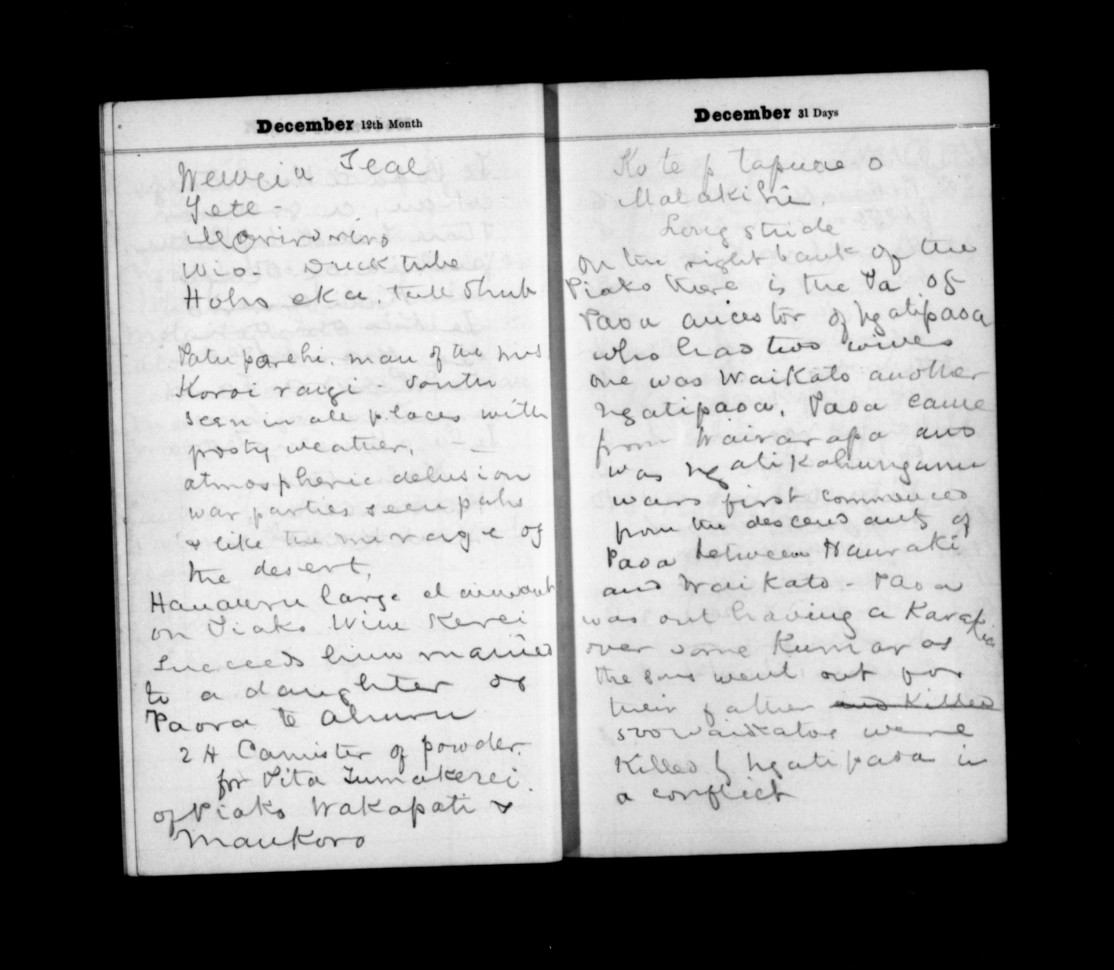 December 12th Month
Weweia Teal
Tete -
Moriroriro
Wio - Duck tribe
Hoho eka. tall Shrub
Patuparehi. man of the mist
Koroi rangi - South
seen in all places with
frosty weather,
atmospheric delusion
war parties seen pahs
& like the mirage of
the desert,
Hanauru large claimant
on Piako Wini Kerei
Succeeds him married
to a daughter of
Paora te Ahuru
2 H Cannister of powder
for Pita Tumakerei.
of Piako Wakapati &
Maukoro
December 31 Days
Ko te p tapuae o
Matakihi.
Long stride
on the right bank of the
Piako there is the Pa of
Paoa ancestor of Ngatipaoa
who had two wives
one was Waikato another
Ngatipaoa. Paoa came
from Wairarapa and
was Ngatikahungunu
wars first commenced
from the descendants of
Paoa between Hauraki
and Waikato - Paoa
was out having a Karakia
over some Kumaras
the sons went out for
their father and Killed
500 Waikatos were
Killed by Ngatipaoa in
a conflict